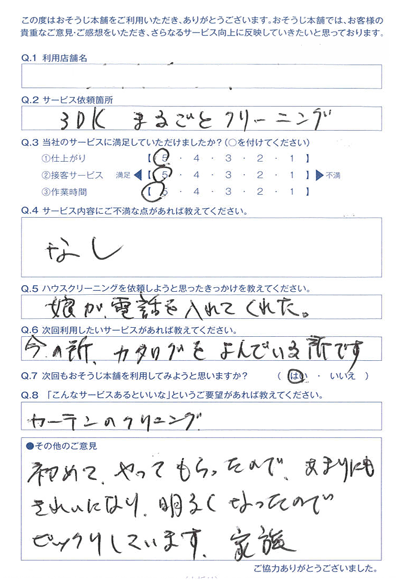 この度はおそうじ本舗をご利用いただき、ありがとうございます。おそうじ本舗では、お客様の
貴重なご意見・ご感想をいただき、さらなるサービス向上に反映していきたいと思っております。
Q.1 利用店舗名
Q.2 サービス依頼箇所
3DK まるごとクリーニング
Q.3 当社のサービスに満足していただけましたか?(○を付けてください)
①仕上がり 【 5 ・ 4 ・ 3 ・ 2 ・ 1 】
②接客サービス 満足 ◀【 5 ・ 4 ・ 3 ・ 2 ・ 1 】▶ 不満
③作業時間 【 5 ・ 4 ・ 3 ・ 2 ・ 1 】
Q.4 サービス内容にご不満な点があれば教えてください。
なし
Q.5 ハウスクリーニングを依頼しようと思ったきっかけを教えてください。
娘が、電話を入れてくれた。
Q.6 次回利用したいサービスがあれば教えてください。
今の所、カタログをよんでいる所です
Q.7 次回もおそうじ本舗を利用してみようと思いますか? ( はい ・ いいえ )
Q.8 「こんなサービスあるといいな」というご要望があれば教えてください。
カーテンのクリニング
●その他のご意見
初めて、やってもらったので、あまりにも
きれいになり、明るくなったので
ビックリしています。家族
ご協力ありがとうございました。